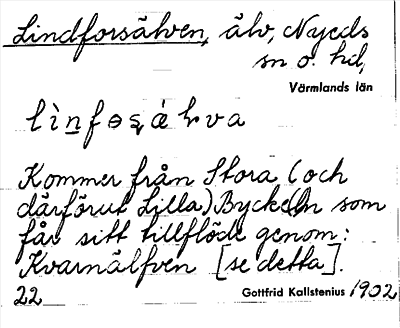 Lindforsälven, älv, Nyeds
sn o. hd,
Värmlands län
Kommer från Stora (och
därförut Lilla) Byckeln som
får sitt tillflöde genom:
Kvarnälfven [se detta].
22 Gottfrid Kallstenius 1902